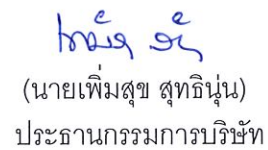 (นายเพิ่มสุข สุทธินุ่น)
ประธานกรรมการบริษัท